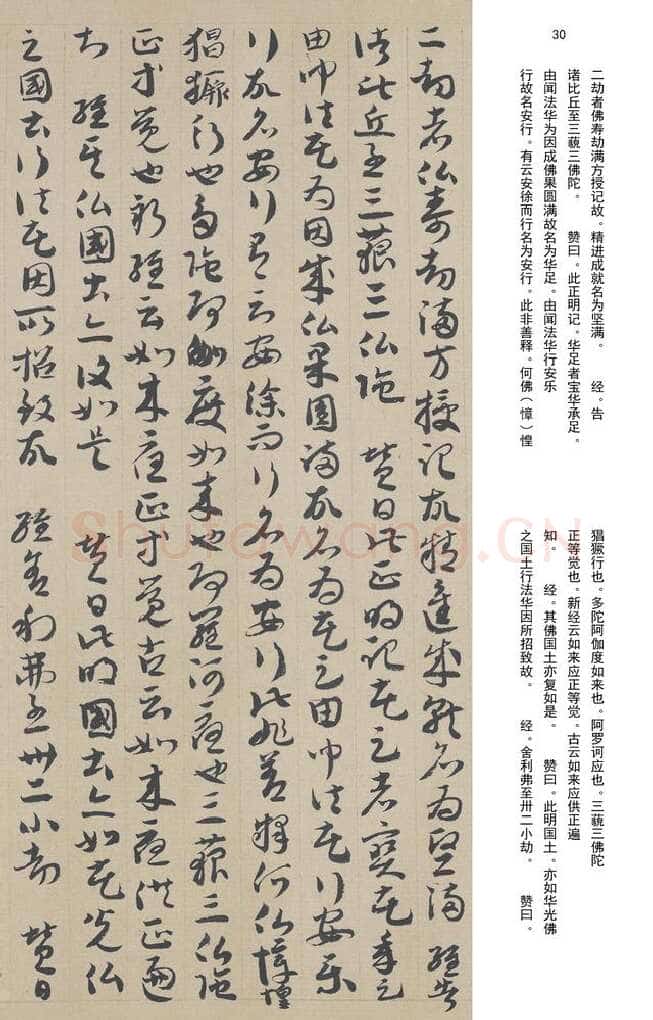 30
二劫者佛寿劫满方授记故。精进成就名为坚满。 经。告
诸比丘至三藐三佛陀。 赞曰。此正明记。华足者宝华承足。
由闻法华为因成佛果圆满故名为华足。由闻法华行安乐
行故名安行。有云安徐而行名为安行。此非善释。何佛（慞）惶
猖獗行也。多陀阿伽度如来也。阿罗诃应也。三藐三佛陀
正等觉也。新经云如来应正等觉。古云如来应供正遍
知。 经。其佛国土亦复如是。 赞曰。此明国土。亦如华光佛
之国土行法华因所招致故。 经。舍利弗至卅二小劫。 赞曰。
二劫者仏壽劫滿方授記故精進成就名為堅滿 經告
諸比丘至三藐三仏陁 賛曰此正明記花足者寶花承足
由聞法花為因成仏果圓滿故名為花足由聞法花行安樂
行故名安行有云安徐而行名為安行此非善釋何仏慞惶
猖獗行也多陁阿伽度如來也阿羅诃應也三藐三仏陁
正等覺也新經云如來應正等覺古云如來應供正遍
知 經其仏國土亦復如是 賛曰此明國土亦如花光仏
之國土行法花因所招致故 經舍利弗至卅二小劫 賛曰
Shufawang.CN